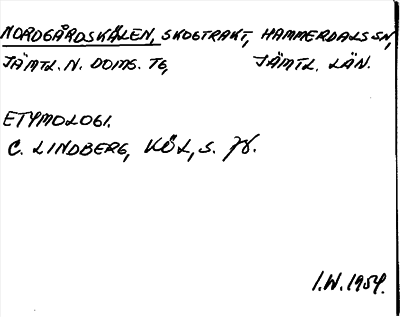 NORDGÅRDSKÅLEN, SKOGTRAKT, HAMMERDALS SN,
JÄMTL. N. DOMS. TG, JÄMTL. LÄN.
ETYMOLOGI.
C. LINDBERG, KÖL, S.
I.W. 1954.